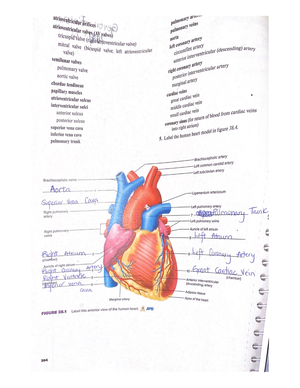 atrioventricular orifices
atrioventricular valves (AV valves)
tricuspid valve (right atrioventricular valve)
mitral valve (bicuspid valve; left atrioventricular
valve)
semilunar valves
pulmonary valve
aortic valve
chordae tendineae
papillary muscles
atrioventricular sulcus
interventricular sulci
anterior sulcus
posterior sulcus
superior vena cava
inferior vena cava
pulmonary trunk
pulmonary veins
aorta
left coronary artery
circumflex artery
anterior interventricular (descending) artery
right coronary artery
posterior interventricular artery
marginal artery
cardiac veins
great cardiac vein
middle cardiac vein
small cardiac vein
coronary sinus (for return of blood from cardiac veins
into right atrium)
5. Label the heart model in figure 38.4.
Brachiocephalic artery
Left common carotid artery
Left subclavian artery
Brachiocephalic vein
Aorta
Superior Vena Cava
Ligamentum arteriosum
Right pulmonary
artery
Left pulmonary artery
Pulmonary Trunk
Left pulmonary veins
Right pulmonary
veins
Auricle of left atrium
Left Atrium
Right Atrium
Auricle of right atrium
Left Coronary Artery
Right Coronary Artery
Right Ventricle
Great Cardiac Vein
Inferior vena
cava
Anterior interventricular
(descending) artery
Marginal artery
Adipose tissue
Apex of the heart
FIGURE 38.1 Label this anterior view of the human heart.